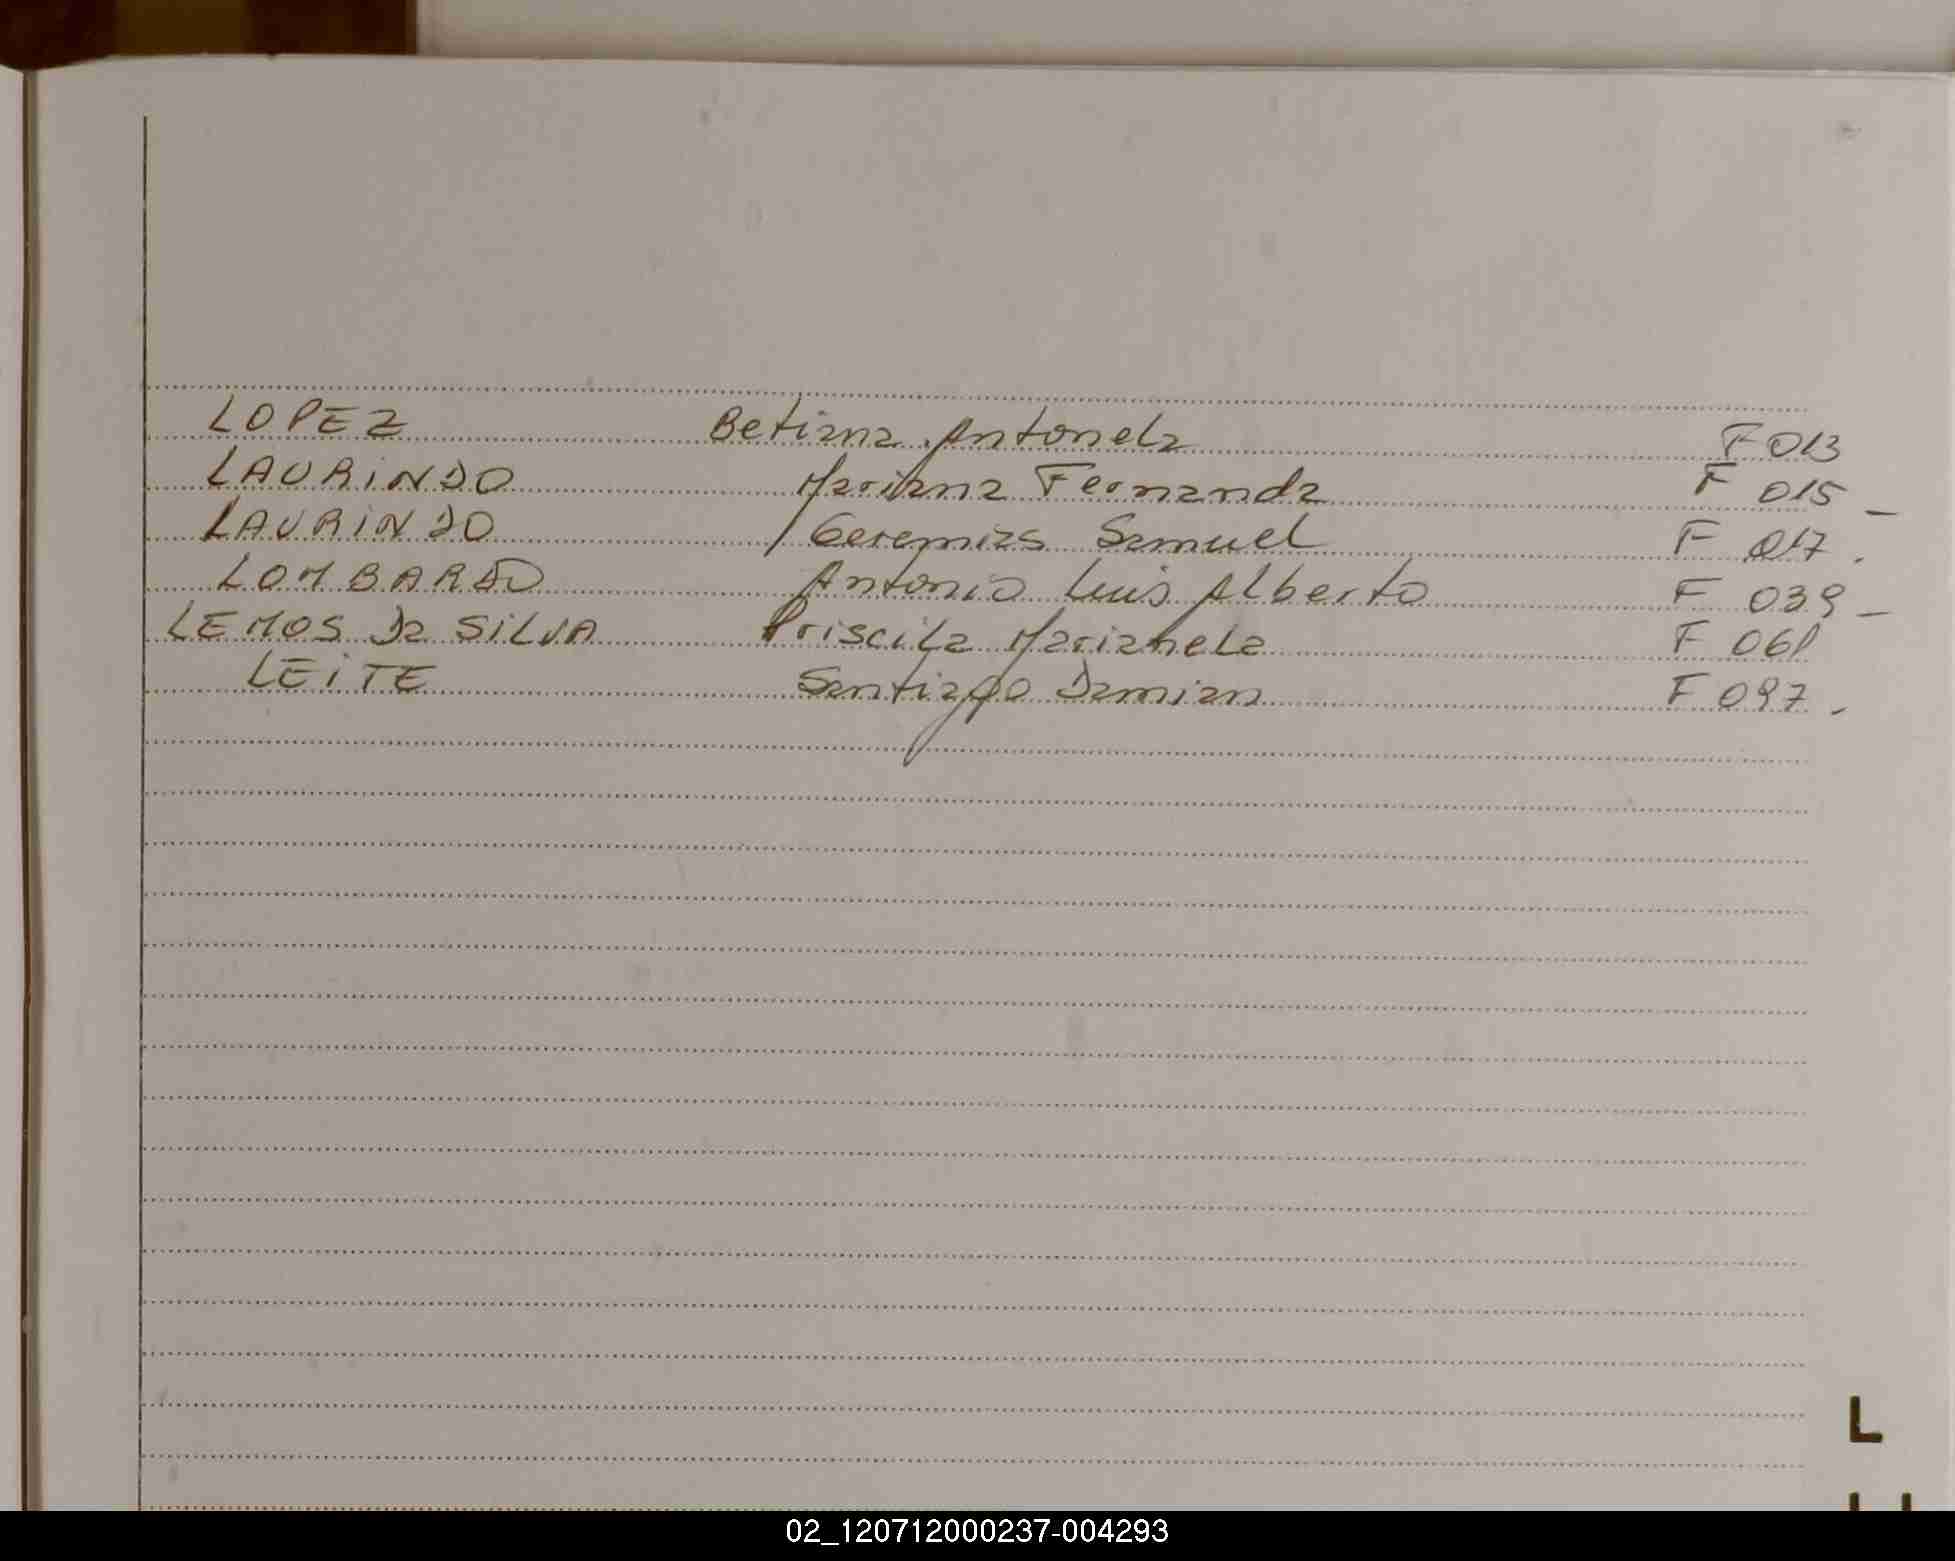 LOPEZ Betiana Antonela F 013
LAURINDO Mariana Fernanda F 015 -
LAURINDO Geremias Samuel F 017.
LOMBARDO Antonio Luis Alberto F 039 -
LEMOS Da SILVA Priscila Marianela F 061
LEITE Santiago Damian F 097.
L
02_120712000237-004293